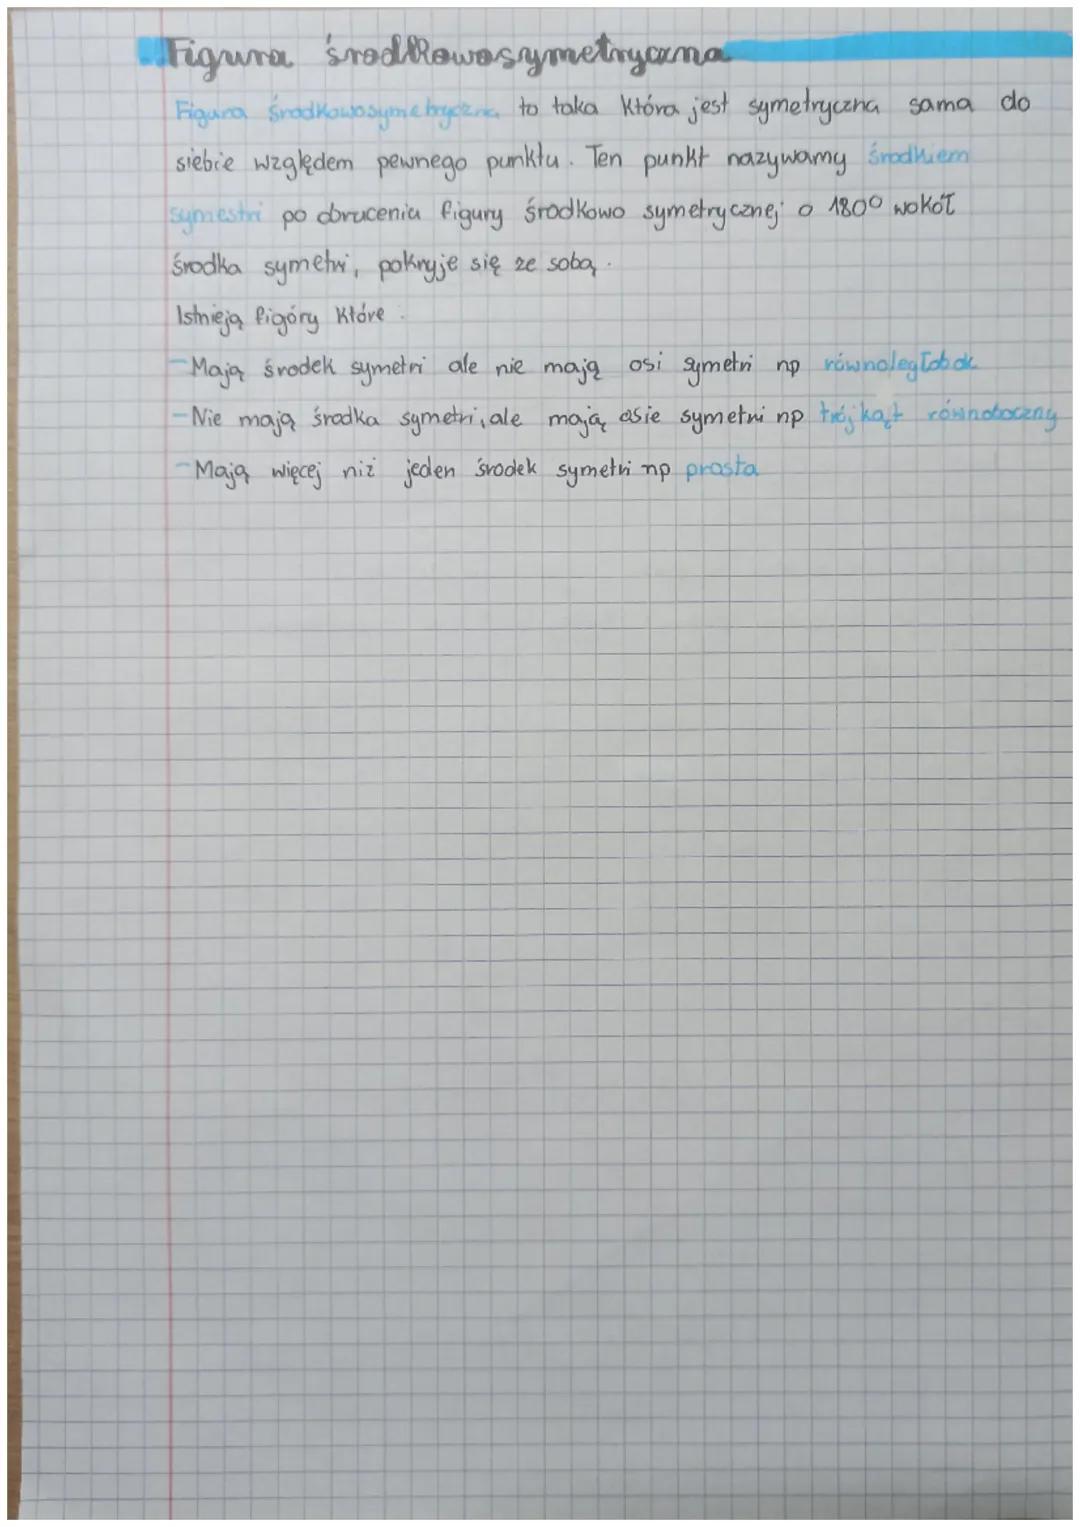 Figura środkowosymetryczna
Figura środkowosymetryczna to taka która jest symetryczna sama do
siebie względem pewnego punktu. Ten punkt nazywamy środkiem
symestri po obruceniu figury środkowo symetrycznej o 180° wokół
środka symetri, pokryje się ze sobą.
Istnieją figóry które:
- Mają środek symetri ale nie mają osi symetri np równoległobok
- Nie mają środka symetri, ale mają osie symetri np trójkąt równoboczny
- Mają więcej niż jeden środek symetri np prosta